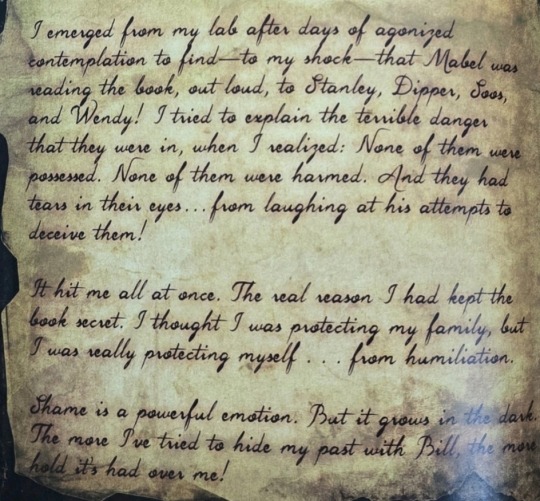 I emerged from my lab after days of agonized
contemplation to find—to my shock—that Mabel was
reading the book, out loud, to Stanley, Dipper, Soos,
and Wendy! I tried to explain the terrible danger
that they were in, when I realized: None of them were
possessed. None of them were harmed. And they had
tears in their eyes...from laughing at his attempts to
deceive them!
It hit me all at once. The real reason I had kept the
book secret. I thought I was protecting my family, but
I was really protecting myself . . . from humiliation.
Shame is a powerful emotion. But it grows in the dark.
The more I've tried to hide my past with Bill, the more
hold it's had over me!